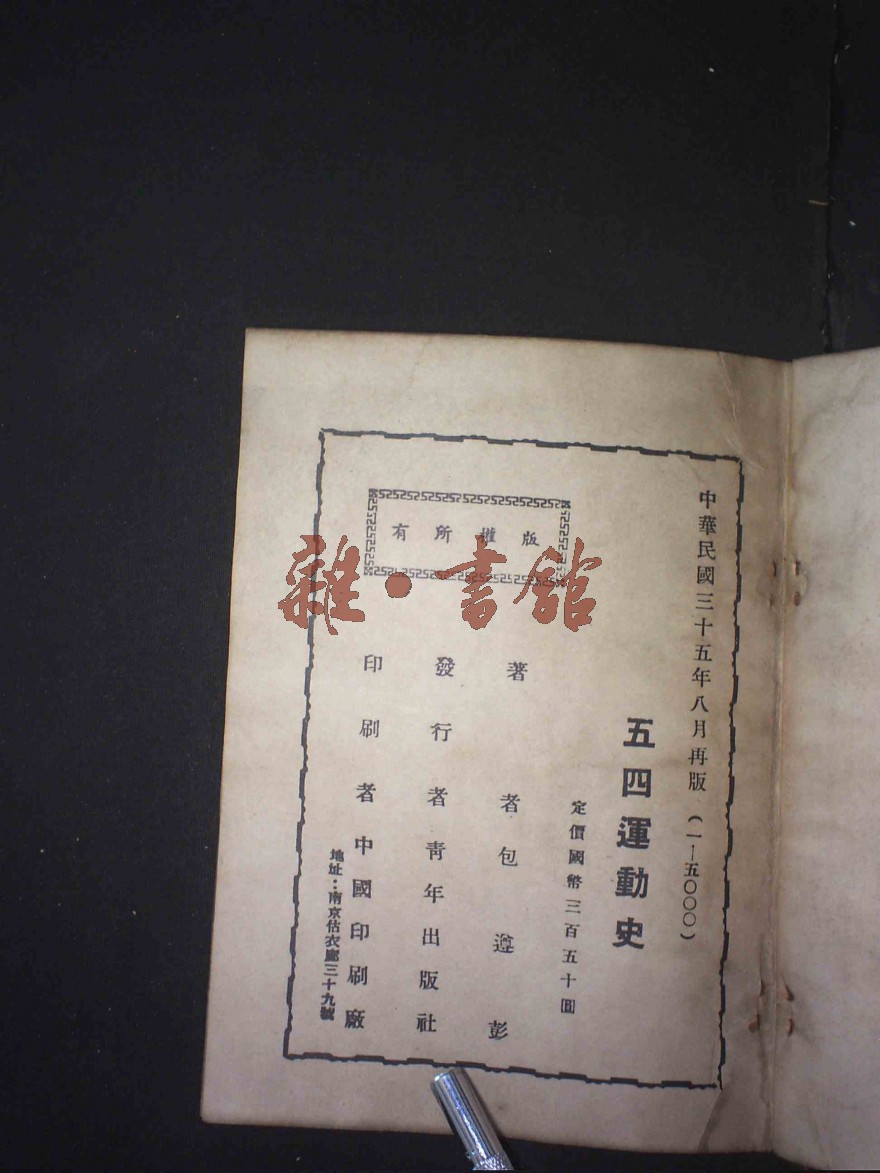 中華民國三十五年八月再版 (一—五〇〇〇)
五四運動史
定價國幣三百五十圓
著者包遵彭
發行者青年出版社
印刷者中國印刷廠
地址：南京估衣廊三十九號
版權所有
雜·書館